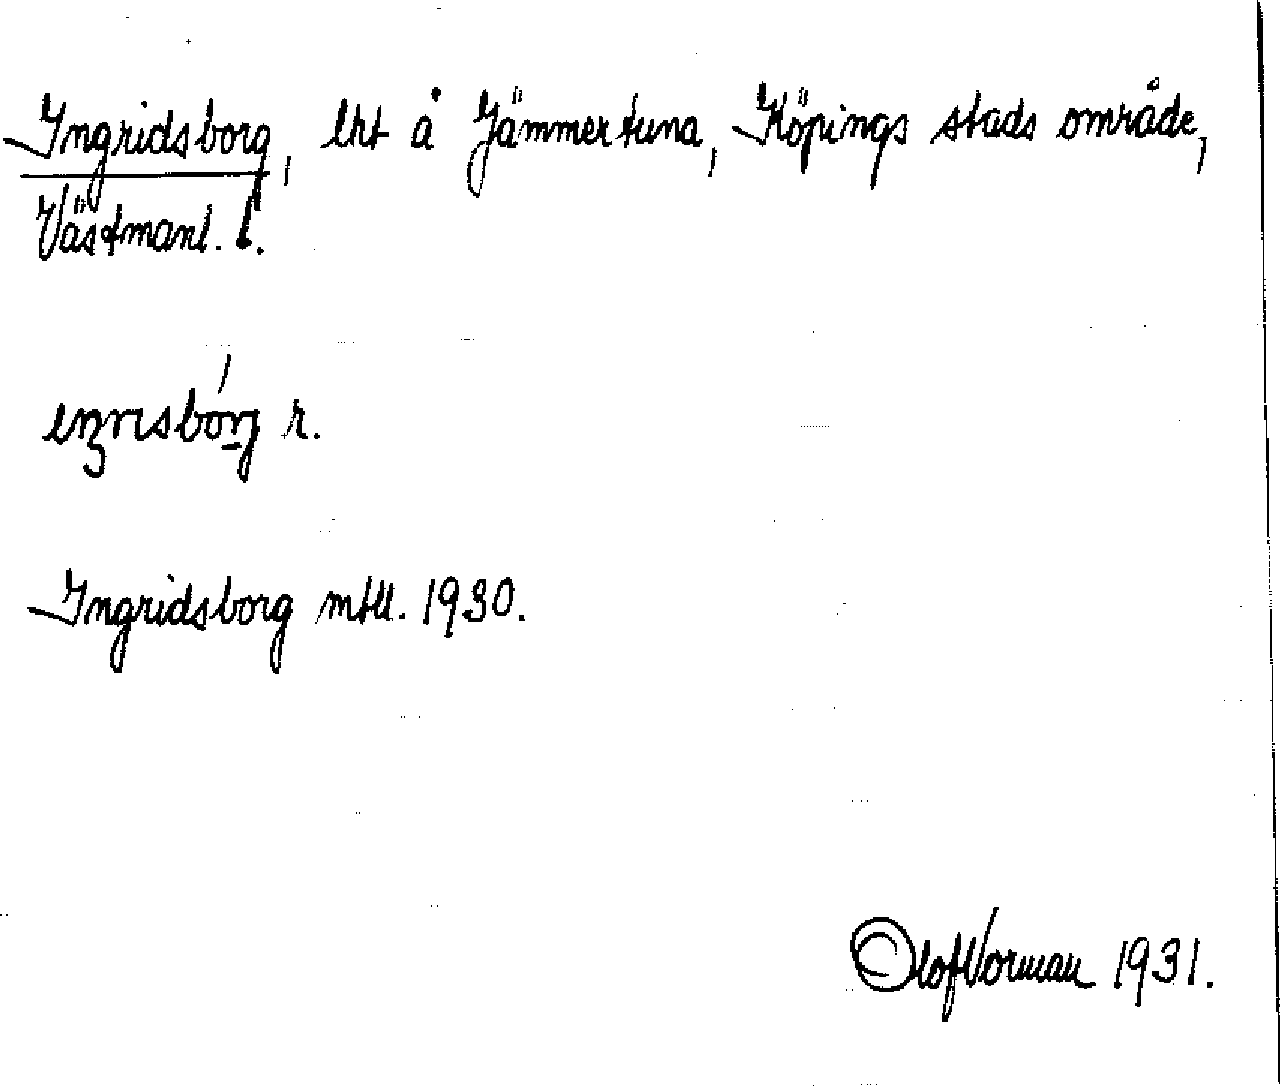 Ingridsborg, lht å Jämmertuna, Köpings stads område,
Västmanl. l.
r.
Ingridsborg mtll. 1930.
Olof Vorman 1931.